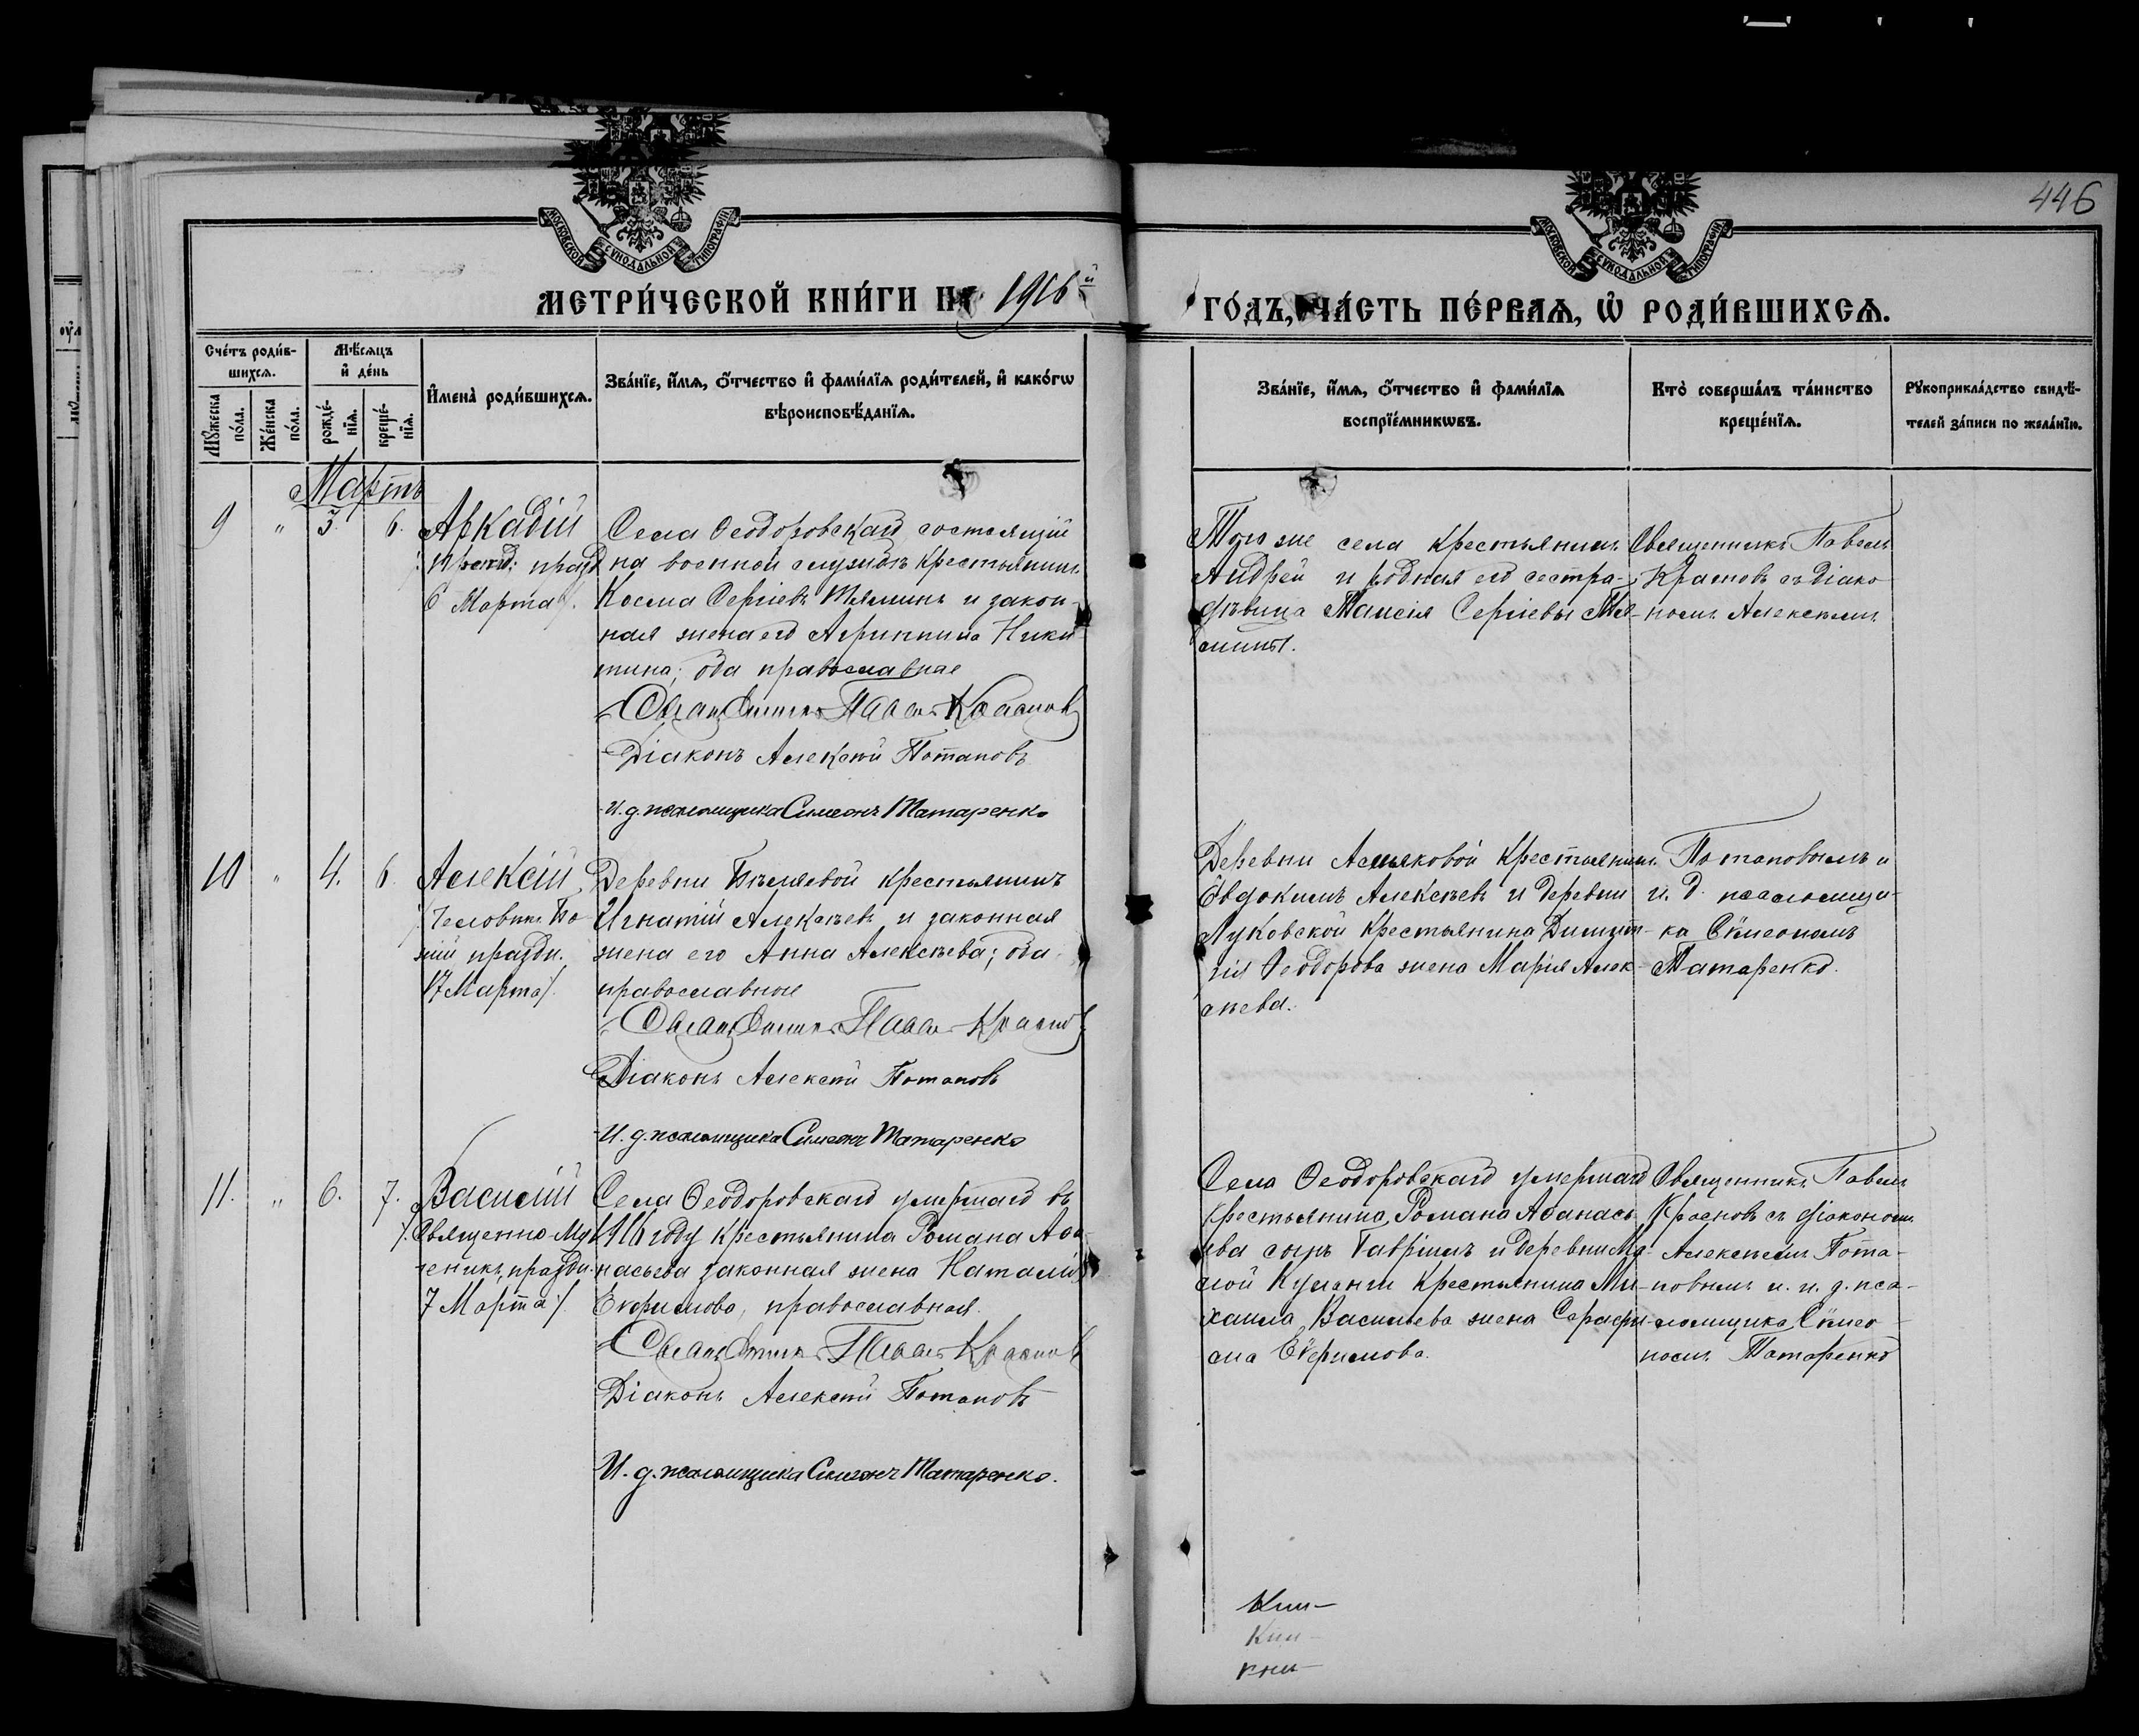 446
МОСКОВСКОЙ СУНОДАЛЬНОЙ ТИПОГРАФІИ
МОСКОВСКОЙ СУНОДАЛЬНОЙ ТИПОГРАФІИ
МЕТРИ́ЧЕСКОЙ КНИ́ГИ НА 1916й
ГО́ДЪ, ЧА́СТЬ ПЕ́РВАѦ, Ѡ҆ РОДИ́ВШИХСѦ.
Сче́тъ роди́в-
шихсѧ.
Мꙋ́жеска по́лꙋ.
Же́нска по́лꙋ.
Мѣ́сѧцъ
и҆ де́нь
рожде́-
нїѧ.
креще́-
нїѧ.
И҆мена̀ роди́вшихсѧ.
Зва́нїе, и҆́мѧ, ѻ҆́тчество и҆ фами́лїѧ роди́телей, и҆ како́гѡ
вѣроисповѣ́данїѧ.
Зва́нїе, и҆́мѧ, ѻ҆́тчество и҆ фами́лїѧ
воспрїе́мникѡвъ.
Кто̀ соверша́лъ та́инство
креще́нїѧ.
Рꙋкоприкла́дство свидѣ́-
телей за́писи по жела́нїю.
Мартъ
9 " 3 6. Аркадій
празд
6 Марта/.
Села Ѳеодоровскаго состоящій
на военной службѣ крестьянинъ
Косма Сергіевъ Тяминъ и закон-
ная жена его Агриппина Ники-
тина; оба православные
Священникъ Павелъ Красновъ
Діаконъ Алексѣй Потаповъ
И. д. псаломщика Симеонъ Татаренко
Того же села крестьянинъ
Андрей и родная его сестра-
дѣвица Таисія Сергіевы Тя-
мины.
Священникъ Павелъ
Красновъ съ діако-
номъ Алексѣемъ
10 " 4. 6. Алексій
/Человѣкъ Бо-
жій праздн.
17 Марта/.
Деревни крестьянинъ
Игнатій Алексѣевъ и законная
жена его Анна Алексѣева; оба
православные
Священникъ Павелъ Красновъ
Діаконъ Алексѣй Потаповъ
И. д. псаломщика Симеонъ Татаренко
Деревни крестьянинъ
Евдокимъ Алексѣевъ и деревни
Луковской крестьянина Димит-
рія Ѳеодорова жена Марія Алек-
сѣева.
Потаповымъ и
и. д. псаломщи-
ка Сѷмеономъ
Татаренко.
11. " 6. 7. Василій
/.Священно-Му-
ченикъ, праздн.
7 Марта/.
Села Ѳеодоровскаго умершаго въ
1916 году крестьянина Романа Аѳа-
насьева законная жена Наталія
Ефримова, православная.
Священникъ Павелъ Красновъ
Діаконъ Алексѣй Потаповъ
И. д. псаломщика Симеонъ Татаренко.
Села Ѳеодоровскаго умершаго
крестьянина Романа Аѳанась-
ева сынъ Гавріилъ и деревни Ма-
лой крестьянина Ми-
хаила Васильева жена Серафи-
ма Ефримова.
Священникъ Павелъ
Красновъ съ діакономъ
Алексѣемъ Пота-
повымъ и. и. д. пса-
ломщика Сѷмео-
номъ Татаренко